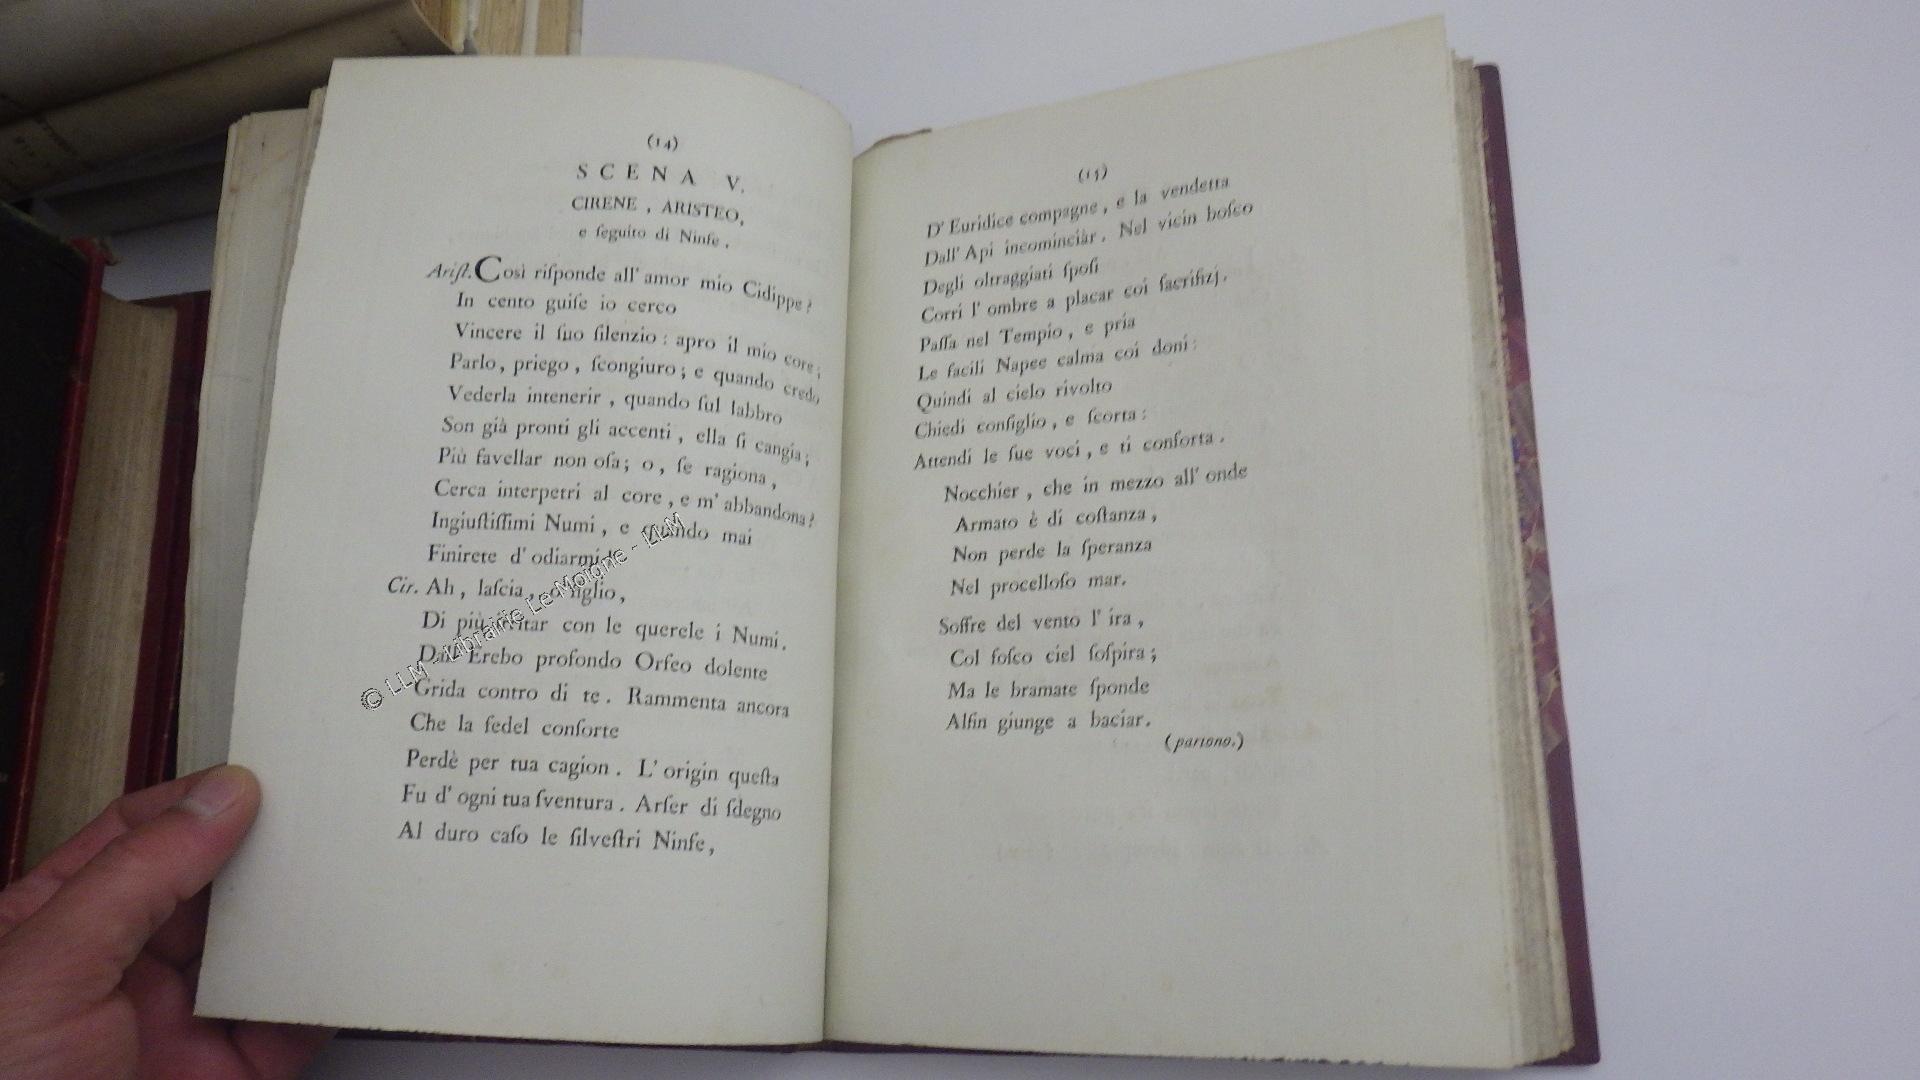 (14)
SCENA V.
CIRENE, ARISTEO,
e ſeguito di Ninfe.
Ariſt. Così riſponde all' amor mio Cidippe?
In cento guiſe io cerco
Vincere il ſuo ſilenzio: apro il mio core;
Parlo, priego, ſcongiuro; e quando credo
Vederla intenerir, quando ſul labbro
Son già pronti gli accenti, ella ſi cangia;
Più favellar non oſa; o, ſe ragiona,
Cerca interpetri al core, e m' abbandona?
Ingiuſtiſſimi Numi, e quando mai
Finirete d' odiarmi?
Cir. Ah, laſcia, o figlio,
Di più irritar con le querele i Numi.
Dall' Erebo profondo Orfeo dolente
Grida contro di te. Rammenta ancora
Che la fedel conſorte
Perdè per tua cagion. L' origin queſta
Fu d' ogni tua ſventura. Arſer di ſdegno
Al duro caſo le ſilveſtri Ninfe,
© LLM - Librairie Le Moigne - LLM
(15)
D' Euridice compagne, e la vendetta
Dall' Api incominciàr. Nel vicin boſco
Degli oltraggiati ſpoſi
Corri l' ombre a placar coi ſacrifizj.
Paſſa nel Tempio, e pria
Le facili Napee calma coi doni:
Quindi al cielo rivolto
Chiedi conſiglio, e ſcorta:
Attendi le ſue voci, e ti conforta.
Nocchier, che in mezzo all' onde
Armato è di coſtanza,
Non perde la ſperanza
Nel procelloſo mar.
Soffre del vento l' ira,
Col foſco ciel ſoſpira;
Ma le bramate ſponde
Alfin giunge a baciar.
(partono.)